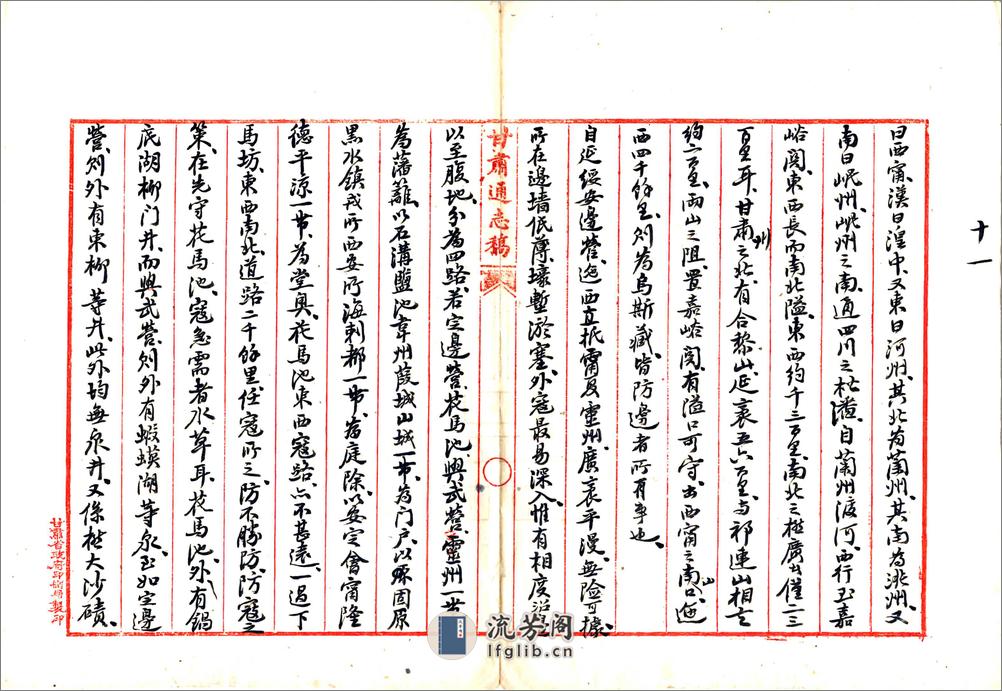 十一
曰西甯漢曰湟中又東曰河州其北為蘭州其南為洮州又
南曰岷州岷州之南通四川之松潘自蘭州渡河西行至嘉
峪関東西長而南北隘東西約千三百里南北之極廣者僅二三
百里耳甘肅州之北有合黎山延袤五六百里与祁連山相去
約二百里兩山之阻置嘉峪関有隘口可守出西甯之南山口迤
西四千餘里則為烏斯藏皆防邊者所有事也
自延綏安邊營迤西直抵甯夏靈州廣衰平漫無險可據
所在邊墻低薄壕塹淤塞外寇最易深入惟有相度沿邊
以至腹地分為四路若定邊營花馬池興武營靈州一帶
為藩籬以石溝鹽池韋州葭城山城一帶為門户以原固原
黑水鎮戎所西安所海剌都一帶為庭除以安定會甯隆
德平涼一帶為堂奥花馬池東西寇路亦不甚遠一過下
馬坊東西南北道路二千餘里任寇所之防不勝防防寇之
策在先守花馬池寇急需者水草耳花馬池外有鍋
底湖柳門井而興武營則外有蝦蟆湖等泉至如定邊
營則外有東柳等井此外均無泉井又係枯大沙磧
甘肅通志稿
甘肅省政府印刷局製印
流芳阁
lfglib.cn